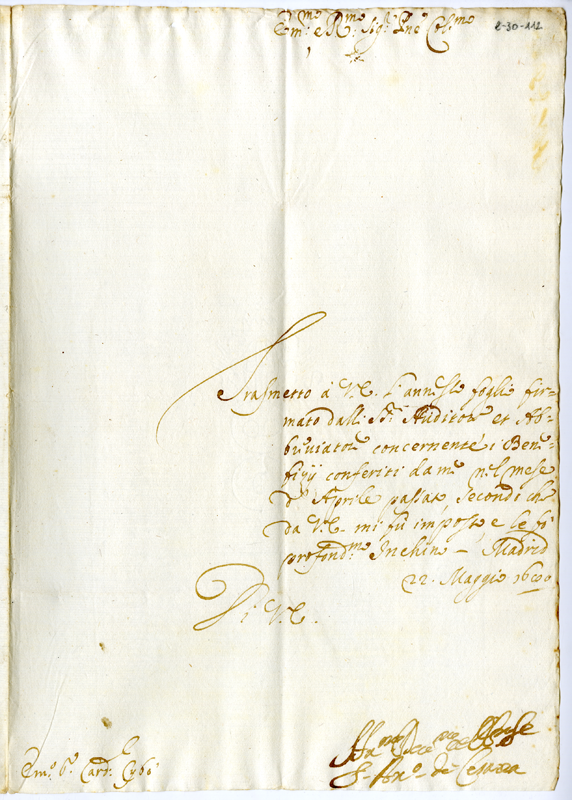 Em.mo e R.mo Sig.r Pne Col.mo
2-30-112
Trasmetto à V.E. l'annesso foglio fir=
mato dalli SS.ri Auditore et Ab=
breviatore concernente i Bene=
fizij conferiti da me nel mese
d'Aprile passato secondo che
da V.E. mi fù imposto, e le fò
profond.mo Inchino - Madrid
22. Maggio
Di V.E.
Em.o S.r Card. Cybo